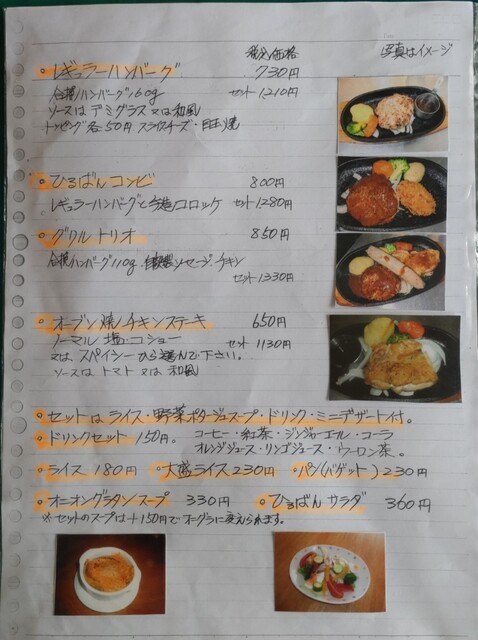 税込価格 写真はイメージ
○レギュラーハンバーグ 730円
合挽ハンバーグ160g セット1210円
ソースは デミグラス 又は 和風
トッピング各50円 スライスチーズ・目玉焼
○ひろばんコンビ 800円
レギュラーハンバーグと手造りコロッケ セット1280円
○グリルトリオ 850円
合挽ハンバーグ110g 自家製ソーセージ チキン
セット1330円
○オーブン焼チキンステーキ 650円
ノーマル 塩・コショー セット 1130円
又は スパイシー から選んで下さい。
ソースは トマト 又は 和風
○セットは ライス・野菜ポタージュスープ・ドリンク・ミニデザート付。
○ドリンクセット 150円。 コーヒー・紅茶・ジンジャーエール・コーラ
オレンジジュース・リンゴジュース・ウーロン茶。
○ライス 180円 ○大盛ライス230円 ○パン(バゲット)230円
○オニオングラタンスープ 330円 ○ひろばんサラダ 360円
※セットのスープは+150円でオニグラに変えられます。